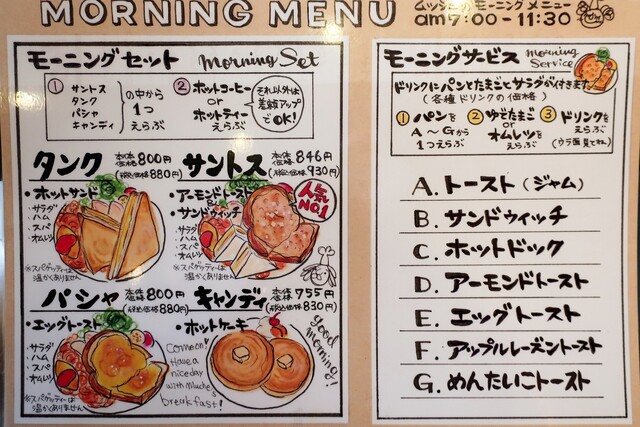 MORNING MENU
ムッシュのモーニングメニュー
am7:00-11:30
モーニングセット Morning Set
① サントス
タンク
パシャ
キャンディ
の中から
1つ
えらぶ
② ホットコーヒー
or
ホットティー
えらぶ
それ以外は
差額アップ
でOK!
タンク 本体価格800円
(税込価格880円)
・ホットサンド
サラダ
ハム
スパ
オムレツ
※スパゲッティーは
温かくありません
サントス 本体価格846円
(税込価格930円)
・アーモンドトースト
・サンドウィッチ
サラダ
ハム
スパ
オムレツ
※スパゲッティーは
温かくありません
人気
NO.1
パシャ 本体価格800円
(税込価格880円)
・エッグトースト
サラダ
ハム
スパ
オムレツ
※スパゲッティーは
温かくありません
キャンディ 本体価格755円
(税込価格830円)
・ホットケーキ
Come on!
Have a
nice day
with
breakfast!
good
morning!
モーニングサービス Morning
Service
ドリンクにパンとたまごとサラダが付きます。
(各種ドリンクの価格)
① パンを
A〜Gから
1つえらぶ
② ゆでたまご
or
オムレツを
えらぶ
③ ドリンクを
えらぶ
(ウラ面見てね。)
A. トースト(ジャム)
B. サンドウィッチ
C. ホットドック
D. アーモンドトースト
E. エッグトースト
F. アップルレーズントースト
G. めんたいこトースト